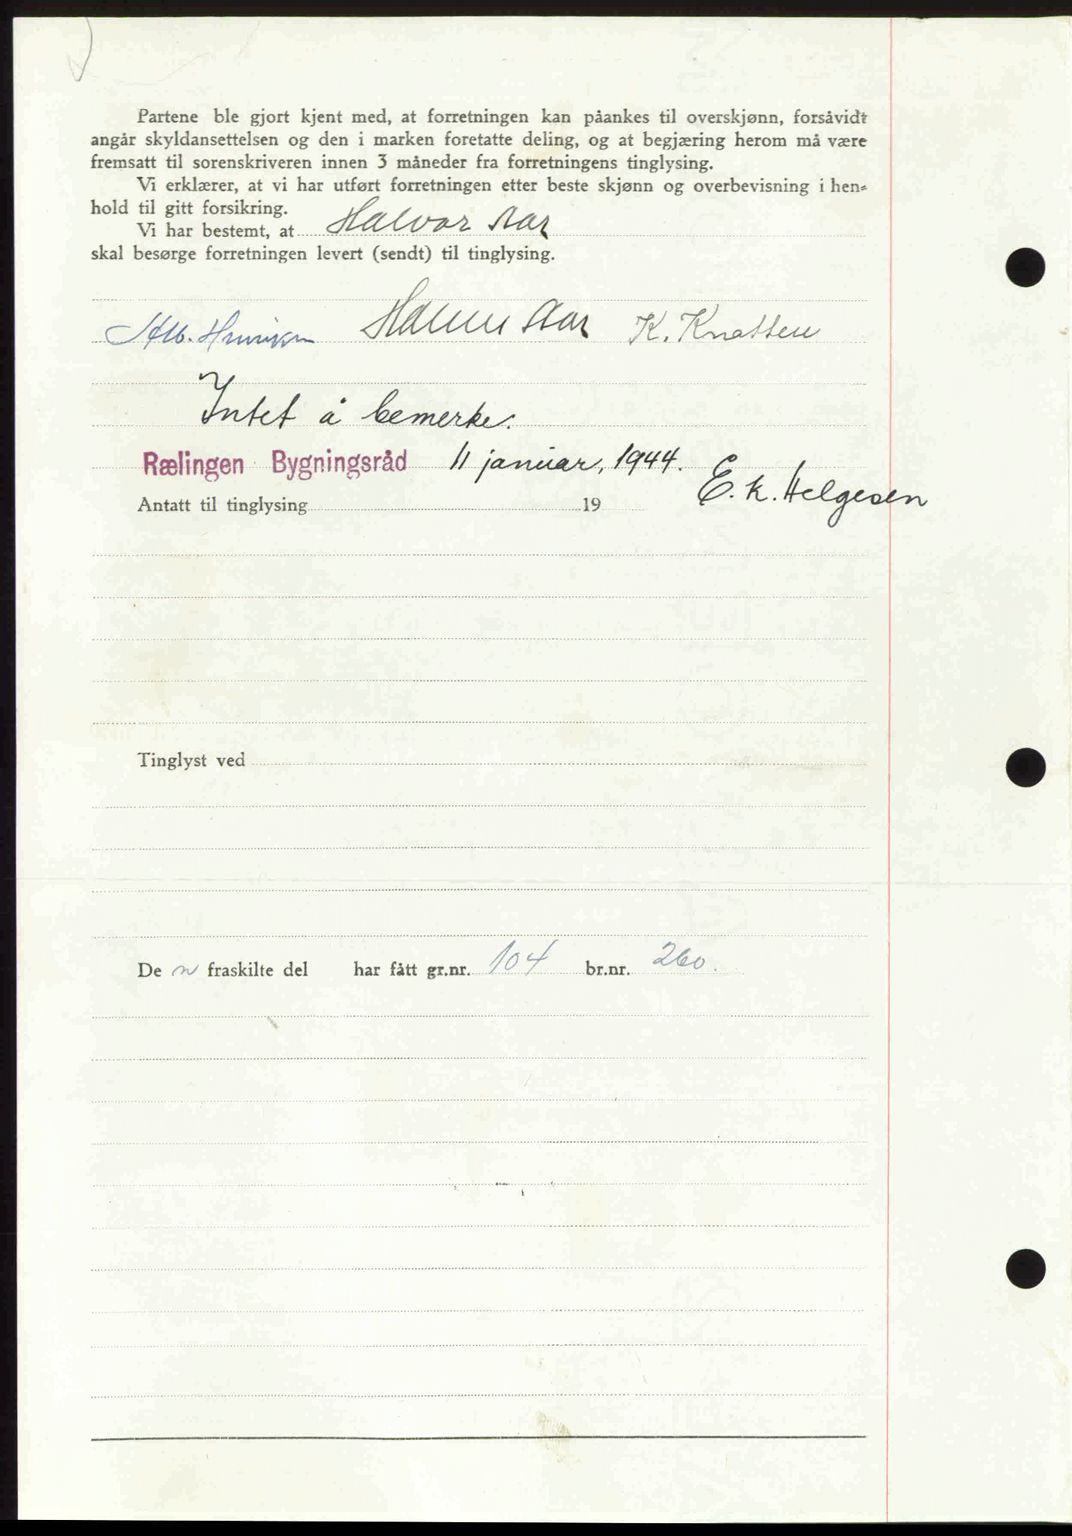 Partene ble gjort kjent med, at forretningen kan påankes til overskjønn, forsåvidt
angår skyldansettelsen og den i marken foretatte deling, og at begjæring herom må være
fremsatt til sorenskriveren innen 3 måneder fra forretningens tinglysing.
Vi erklærer, at vi har utført forretningen etter beste skjønn og overbevisning i hen-
hold til gitt forsikring.
Vi har bestemt, at Halvor Aar
skal besørge forretningen levert (sendt) til tinglysing.
Alb. Aar K. Knatten
Intet å bemerke.
Rælingen Bygningsråd 11 januar, 1944.
E. K. Helgesen
Antatt til tinglysing 19
Tinglyst ved
De n fraskilte del har fått gr.nr. 104 br.nr. 260.